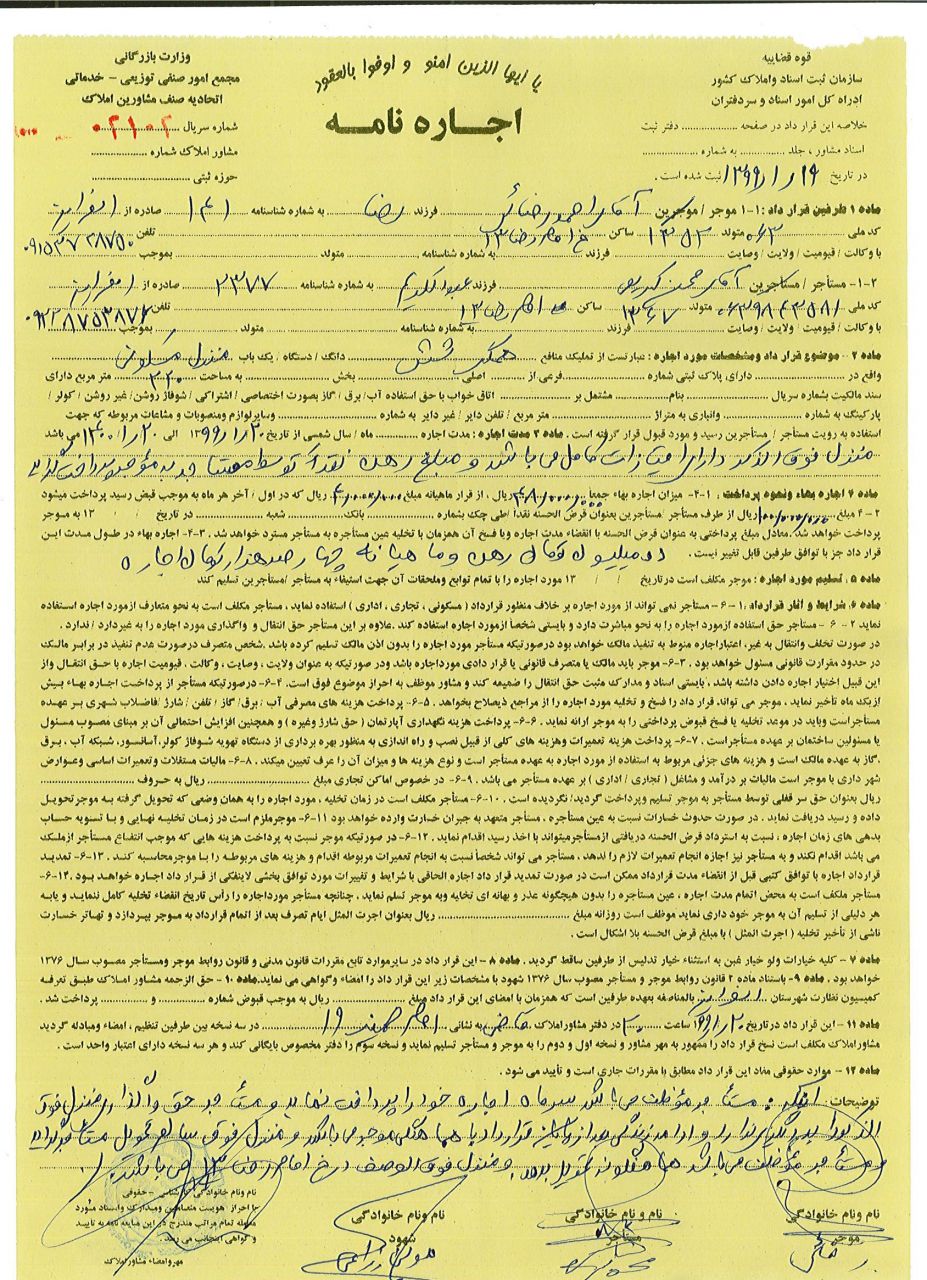 یا ایها الذین امنو و اوفوا بالعقود
قوه قضاییه
سازمان ثبت اسناد واملاک کشور
اداره کل امور اسناد و سردفتران
خلاصه این قرار داد در صفحه .................... دفتر ثبت
اسناد مشاور ، جلد ............. به شماره ....................
در تاریخ ۱۳۹۹/۱/۱۹ ثبت شده است .
وزارت بازرگانی
مجمع امور صنفی توزیعی - خدماتی
اتحادیه صنف مشاورین املاک
شماره سریال
مشاور املاک شماره ....................
حوزه ثبتی ....................
اجـــاره نامـــه
ماده ۱ طرفین قرار داد : ۱-۱ موجر / موجرین آقای احمد رضائی فرزند رضا به شماره شناسنامه ۱۴۱ صادره از
کد ملی ۰۶۳ متولد ۱۳۵۳ ساکن خ امام رضا ۱۳ تلفن
با وکالت / قیومیت / ولایت / وصایت .................... فرزند .................... به شماره شناسنامه .................... متولد .................... بموجب
۱-۲- مستأجر / مستأجرین آقای فرزند عبدالکریم به شماره شناسنامه ۲۳۷۷ صادره از
کد ملی متولد ۱۳۶۷ ساکن امام رضا ۱۳ تلفن
با وکالت / قیومیت / ولایت / وصایت .................... فرزند .................... به شماره شناسنامه .................... متولد .................... بموجب
ماده ۲ - موضوع قرار داد ومشخصات مورد اجاره : عبارتست از تملیک منافع همگی شش دانگ / دستگاه / یک باب منزل مسکونی
واقع در .................... دارای پلاک ثبتی شماره .................... فرعی از .................... اصلی .................... بخش .................... به مساحت ۳۲۰ متر مربع دارای
سند مالکیت بشماره سریال .................... بنام .................... مشتمل بر .................... اتاق خواب با حق استفاده آب / برق / گاز بصورت اختصاصی / اشتراکی / شوفاژ روشن / غیر روشن / کولر /
پارکینگ به شماره .................... وانباری به متراژ .................... متر مربع / تلفن دایر / غیر دایر به شماره .................... وسایرلوازم ومنصوبات و مشاعات مربوطه که جهت
استفاده به رویت مستأجر / مستأجرین رسید و مورد قبول قرار گرفته است . ماده ۳ مدت اجاره : مدت اجاره .......... ماه / سال شمسی از تاریخ ۱۳۹۹/۱/۲۰ الی ۱۴۰۰/۱/۲۰ می باشد
منزل فوق الذکر دارای امتیازات کامل می باشد و مبلغ رهن نقداً توسط مستاجر به موجر پرداخت گردید
ماده ۴ اجاره بهاء ونحوه پرداخت : ۱-۴- میزان اجاره بهاء جمعاً ۴۸/۰۰۰/۰۰۰ ریال ، از قرار ماهیانه مبلغ ۴/۰۰۰/۰۰۰ ریال که در اول / آخر هر ماه به موجب قبض رسید پرداخت میشود
۲-۴ مبلغ ۱۰۰/۰۰۰/۰۰۰ ریال از طرف مستأجر / مستأجرین بعنوان قرض الحسنه نقداً /طی چک بشماره .................... بانک .................... شعبه .................... در تاریخ / / ۱۳ به موجر
پرداخت خواهد شد.معادل مبلغ پرداختی به عنوان قرض الحسنه با انقضاء مدت اجاره ویا فسخ آن همزمان با تخلیه عین مستأجره به مستأجر مسترد خواهد شد . ۳-۴- اجاره بهاء در طول مدت این
قرار داد جز با توافق طرفین قابل تغییر نیست .
ده میلیون تومان رهن و ماهیانه چهارصد هزار تومان اجاره
ماده ۵ . تسلیم مورد اجاره : موجر مکلف است در تاریخ / / ۱۳ مورد اجاره را با تمام توابع وملحقات آن جهت استیفاء به مستأجر / مستأجرین تسلیم کند
ماده ۶. شرایط و آثار قرارداد : ۱-۶- مستأجر نمی تواند از مورد اجاره بر خلاف منظور قرارداد ( مسکونی ، تجاری ، اداری ) استفاده نماید . مستأجر مکلف است به نحو متعارف ازمورد اجاره استفاده
نماید ۲-۶- مستأجر حق استفاده ازمورد اجاره را به نحو مباشرت دارد و بایستی شخصاً ازمورد اجاره استفاده کند .علاوه بر این مستأجر حق انتقال و واگذاری مورد اجاره را به غیردارد / ندارد .
در صورت تخلف وانتقال به غیر، اعتباراجاره منوط به تنفیذ مالک خواهد بود درصورتیکه مستأجر مورد اجاره را بدون اذن مالک تسلیم کرده باشد .شخص متصرف درصورت عدم تنفیذ در برابر مالک
در حدود مقرارت قانونی مسئول خواهد بود . ۳-۶- موجر باید مالک یا متصرف قانونی یا قرار دادی مورداجاره باشد ودر صورتیکه به عنوان ولایت ، وصایت ، وکالت ، قیومیت اجاره با حق انتقال واز
این قبیل اختیار اجاره دادن داشته باشد . بایستی اسناد و مدارک مثبت حق انتقال را ضمیمه کند و مشاور موظف به احراز موضوع فوق است. ۴-۶- درصورتیکه مستأجر از پرداخت اجاره بهاء بیش
ازیک ماه تأخیر نماید ، موجر می تواند قرار داد را فسخ و تخلیه مورد اجاره را از مراجع ذیصلاح بخواهد . ۵-۶- پرداخت هزینه های مصرفی آب / برق/ گاز / تلفن / شارژ /فاضلاب شهری بر عهده
مستأجراست وباید در موعد تخلیه یا فسخ قبوض پرداختی را به موجر ارائه نماید . ۶-۶- پرداخت هزینه نگهداری آپارتمان ( حق شارژ وغیره ) و همچنین افزایش احتمالی آن بر مبنای مصوب مسئول
یا مسئولین ساختمان بر عهده مستأجراست . ۷-۶- پرداخت هزینه تعمیرات وهزینه های کلی از قبیل نصب و راه اندازی به منظور بهره برداری از دستگاه تهویه شوفاژ کولر،آسانسور، شبکه آب ، برق
.گاز به عهده مالک است و هزینه های جزئی مربوط به استفاده از مورد اجاره به عهده مستأجر است و نوع هزینه ها و میزان آن را عرف تعیین میکند . ۸-۶- مالیات مستقلات وتعمیرات اساسی وعوارض
شهر داری با موجر است مالیات بر درآمد و مشاغل ( تجاری / اداری ) بر عهده مستأجر می باشد . ۹-۶- در خصوص اماکن تجاری مبلغ .................... ریال به حروف ....................
ریال بعنوان حق سر قفلی توسط مستأجر به موجر تسلیم وپرداخت گردید/ نگردیده است . ۱۰-۶- مستأجر مکلف است در زمان تخلیه ، مورد اجاره را به همان وضعی که تحویل گرفته به موجرتحویل
داده و رسید دریافت نماید . در صورت حدوث خسارات نسبت به عین مستأجره ، مستأجر متعهد به جبران خسارت وارده خواهد بود ۱۱-۶- موجرملزم است در زمان تخلیه نهایی و با تسویه حساب
بدهی های زمان اجاره ، نسبت به استرداد قرض الحسنه دریافتی ازمستأجرمیتواند با اخذ رسید، اقدام نماید . ۱۲-۶- در صورتیکه موجر نسبت به پرداخت هزینه هایی که موجب انتفاع مستأجر ازملک
می باشد اقدام نکند و به مستأجر نیز اجازه انجام تعمیرات لازم را ندهد، مستأجر می تواند شخصاً نسبت به انجام تعمیرات مربوطه اقدام و هزینه های مربوطه را با موجرمحاسبه کند . ۱۳-۶- تمدید
قرارداد اجاره با توافق کتبی قبل از انقضاء مدت قرارداد ممکن است در صورت تمدید قرار داد اجاره الحاقی با شرایط و تغییرات مورد توافق بخشی لاینفکی از قرار داد اجاره خواهد بود .۱۴-۶-
مستأجر ملکف است به محض اتمام مدت اجاره ، عین مستأجره را بدون هیچگونه عذر و بهانه ای تخلیه وبه موجر تسلم نماید . چنانچه مستأجر مورداجاره را رأس تاریخ انقضاء تخلیه کامل ننماید و یابه
هر دلیلی از تسلیم آن به موجر خود داری نماید موظف است روزانه مبلغ .................... ریال بعنوان اجرت المثل ایام تصرف بعد از اتمام قرارداد به موجر بپردازد و تهاتر خسارت
ناشی از تأخیر تخلیه ( اجرت المثل ) با مبلغ قرض الحسنه بلا اشکال است .
ماده ۷ - کلیه خیارات ولو خیار غبن به استثناء خیار تدلیس از طرفین ساقط گردید . ماده ۸ - این قرار داد در سایرموارد تابع مقررات قانون مدنی و قانون روابط موجر ومستأجر مصوب سال ۱۳۷۶
خواهد بود . ماده ۹- باستناد ماده ۲ قانون روابط موجر و مستأجر مصوب سال ۱۳۷۶ شهود با مشخصات زیر این قرار داد را امضاء وگواهی می نماید.ماده ۱۰ - حق الزحمه مشاور املاک طبق تعرفه
کمیسیون نظارت شهرستان بالمناصفه بعهده طرفین است که همزمان با امضای این قرار داد مبلغ .................... ریال به موجب قبوض شماره .................... و .................... پرداخت شد .
ماده ۱۱ - این قرار داد در تاریخ ۹۹/۱/۲۰ ساعت ۲۰ در دفتر مشاور املاک به نشانی امام خمینی ۱۹ در سه نسخه بین طرفین تنظیم ، امضاء ومبادله گردید
مشاوراملاک مکلف است نسخ قرار داد را ممهور به مهر مشاور و نسخه اول و دوم را به موجر و مستأجر تسلیم نماید و نسخه سوم را دفتر مخصوص بایگانی کند و هر سه نسخه دارای اعتبار واحد است .
ماده ۱۲ - موارد حقوقی مفاد این قرار داد مطابق با مقررات جاری است و تأیید می شود .
توضیحات : اینکه مستاجر موظف می باشد سرماه اجاره خود را پرداخت نماید و مستاجر حق واگذاری منزل فوق
الذکر را به دیگری ندارد و
و مستاجر موظف می باشد و منزل فوق الوصف در خ امام رضا ۱۳ می باشد
نام ونام خانوادگی
موجر
نام و نام خانوادگی
مستأجر
نام ونام خانوادگی
شهود
نام ونام خانوادگی کارشناسی - حقوقی
با احراز هویت متعاملین ومدارک واسناد مورد
معامله تمام مراتب مندرج در این مبایعه نامه به تایید
و گواهی اینجانب می رسد .
مهر وامضاء مشاور املاک